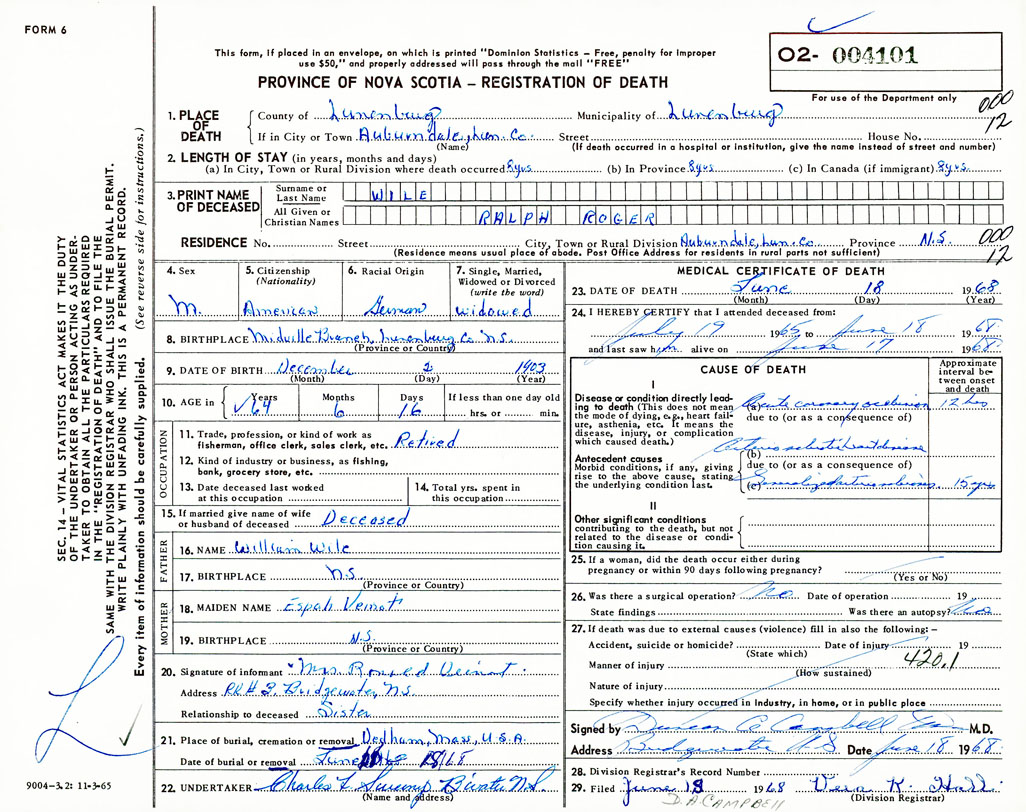 FORM 6
This form, if placed in an envelope, on which is printed "Dominion Statistics – Free, penalty for improper
use $50," and properly addressed will pass through the mail "FREE"
PROVINCE OF NOVA SCOTIA – REGISTRATION OF DEATH
O2- 004101
For use of the Department only
000
12
1. PLACE OF DEATH
County of Lunenburg Municipality of Lunenburg
If in City or Town Auburndale, Lun. Co. Street House No.
(Name) (If death occurred in a hospital or institution, give the name instead of street and number)
2. LENGTH OF STAY (in years, months and days)
(a) In City, Town or Rural Division where death occurred 8yrs. (b) In Province 8yrs. (c) In Canada (if immigrant) 8yrs.
3. PRINT NAME OF DECEASED
Surname or Last Name WILE
All Given or Christian Names RALPH ROGER
RESIDENCE No. Street City, Town or Rural Division Auburndale, Lun. Co. Province N.S.
(Residence means usual place of abode. Post Office Address for residents in rural parts not sufficient)
000
12
4. Sex
M.
5. Citizenship
(Nationality)
American
6. Racial Origin
German
7. Single, Married,
Widowed or Divorced
(write the word)
widowed
8. BIRTHPLACE Midville Branch, Lunenburg Co. N.S.
(Province or Country)
9. DATE OF BIRTH December 2 1903
(Month) (Day) (Year)
10. AGE in Years Months Days If less than one day old
64 6 16 hrs. or min.
OCCUPATION
11. Trade, profession, or kind of work as
fisherman, office clerk, sales clerk, etc. Retired
12. Kind of industry or business, as fishing,
bank, grocery store, etc.
13. Date deceased last worked
at this occupation
14. Total yrs. spent in
this occupation
15. If married give name of wife
or husband of deceased Deceased
FATHER
16. NAME William Wile
17. BIRTHPLACE N.S.
(Province or Country)
MOTHER
18. MAIDEN NAME Espah Veinot
19. BIRTHPLACE N.S.
(Province or Country)
20. Signature of informant "Mrs. Veinot
Address RR# 3, Bridgewater, N.S.
Relationship to deceased Sister
21. Place of burial, cremation or removal Dedham, Mass, U.S.A.
Date of burial or removal June
22. UNDERTAKER Charles L
(Name and address)
MEDICAL CERTIFICATE OF DEATH
23. DATE OF DEATH June 18 1968
(Month) (Day) (Year)
24. I HEREBY CERTIFY that I attended deceased from:
July 19 1965 to June 18 1968
and last saw him alive on June 17 1968
CAUSE OF DEATH
Approximate
interval be-
tween onset
and death
I
Disease or condition directly lead-
ing to death (This does not mean
the mode of dying, e.g., heart fail-
ure, asthenia, etc. It means the
disease, injury, or complication
which caused death.)
(a) Acute coronary occlusion 12 hrs
due to (or as a consequence of)
Antecedent causes
Morbid conditions, if any, giving
rise to the above cause, stating
the underlying condition last.
(b) Arteriosclerotic heart disease
due to (or as a consequence of)
(c) Generalized arteriosclerosis 15 yrs
II
Other significant conditions
contributing to the death, but not
related to the disease or condi-
tion causing it.
25. If a woman, did the death occur either during
pregnancy or within 90 days following pregnancy?
(Yes or No)
26. Was there a surgical operation? No Date of operation 19
State findings Was there an autopsy? No
27. If death was due to external causes (violence) fill in also the following: –
Accident, suicide or homicide? Date of injury 19
(State which)
420.1
Manner of injury
(How sustained)
Nature of injury
Specify whether injury occurred in industry, in home, or in public place
Signed by C. Campbell M.D.
Address Bridgewater N.S. Date June 18 1968
28. Division Registrar's Record Number
29. Filed June 19 1968 K. Hall
(Division Registrar)
D.A CAMPBELL
SEC. 14 – VITAL STATISTICS ACT MAKES IT THE DUTY
OF THE UNDERTAKER OR PERSON ACTING AS UNDER-
TAKER TO OBTAIN ALL THE PARTICULARS REQUIRED
IN THE "REGISTRATION OF DEATH" AND TO FILE THE
SAME WITH THE DIVISION REGISTRAR WHO SHALL ISSUE THE BURIAL PERMIT.
WRITE PLAINLY WITH UNFADING INK. THIS IS A PERMANENT RECORD.
Every item of information should be carefully supplied. (See reverse side for instructions.)
9004-3.2: 11-3-65